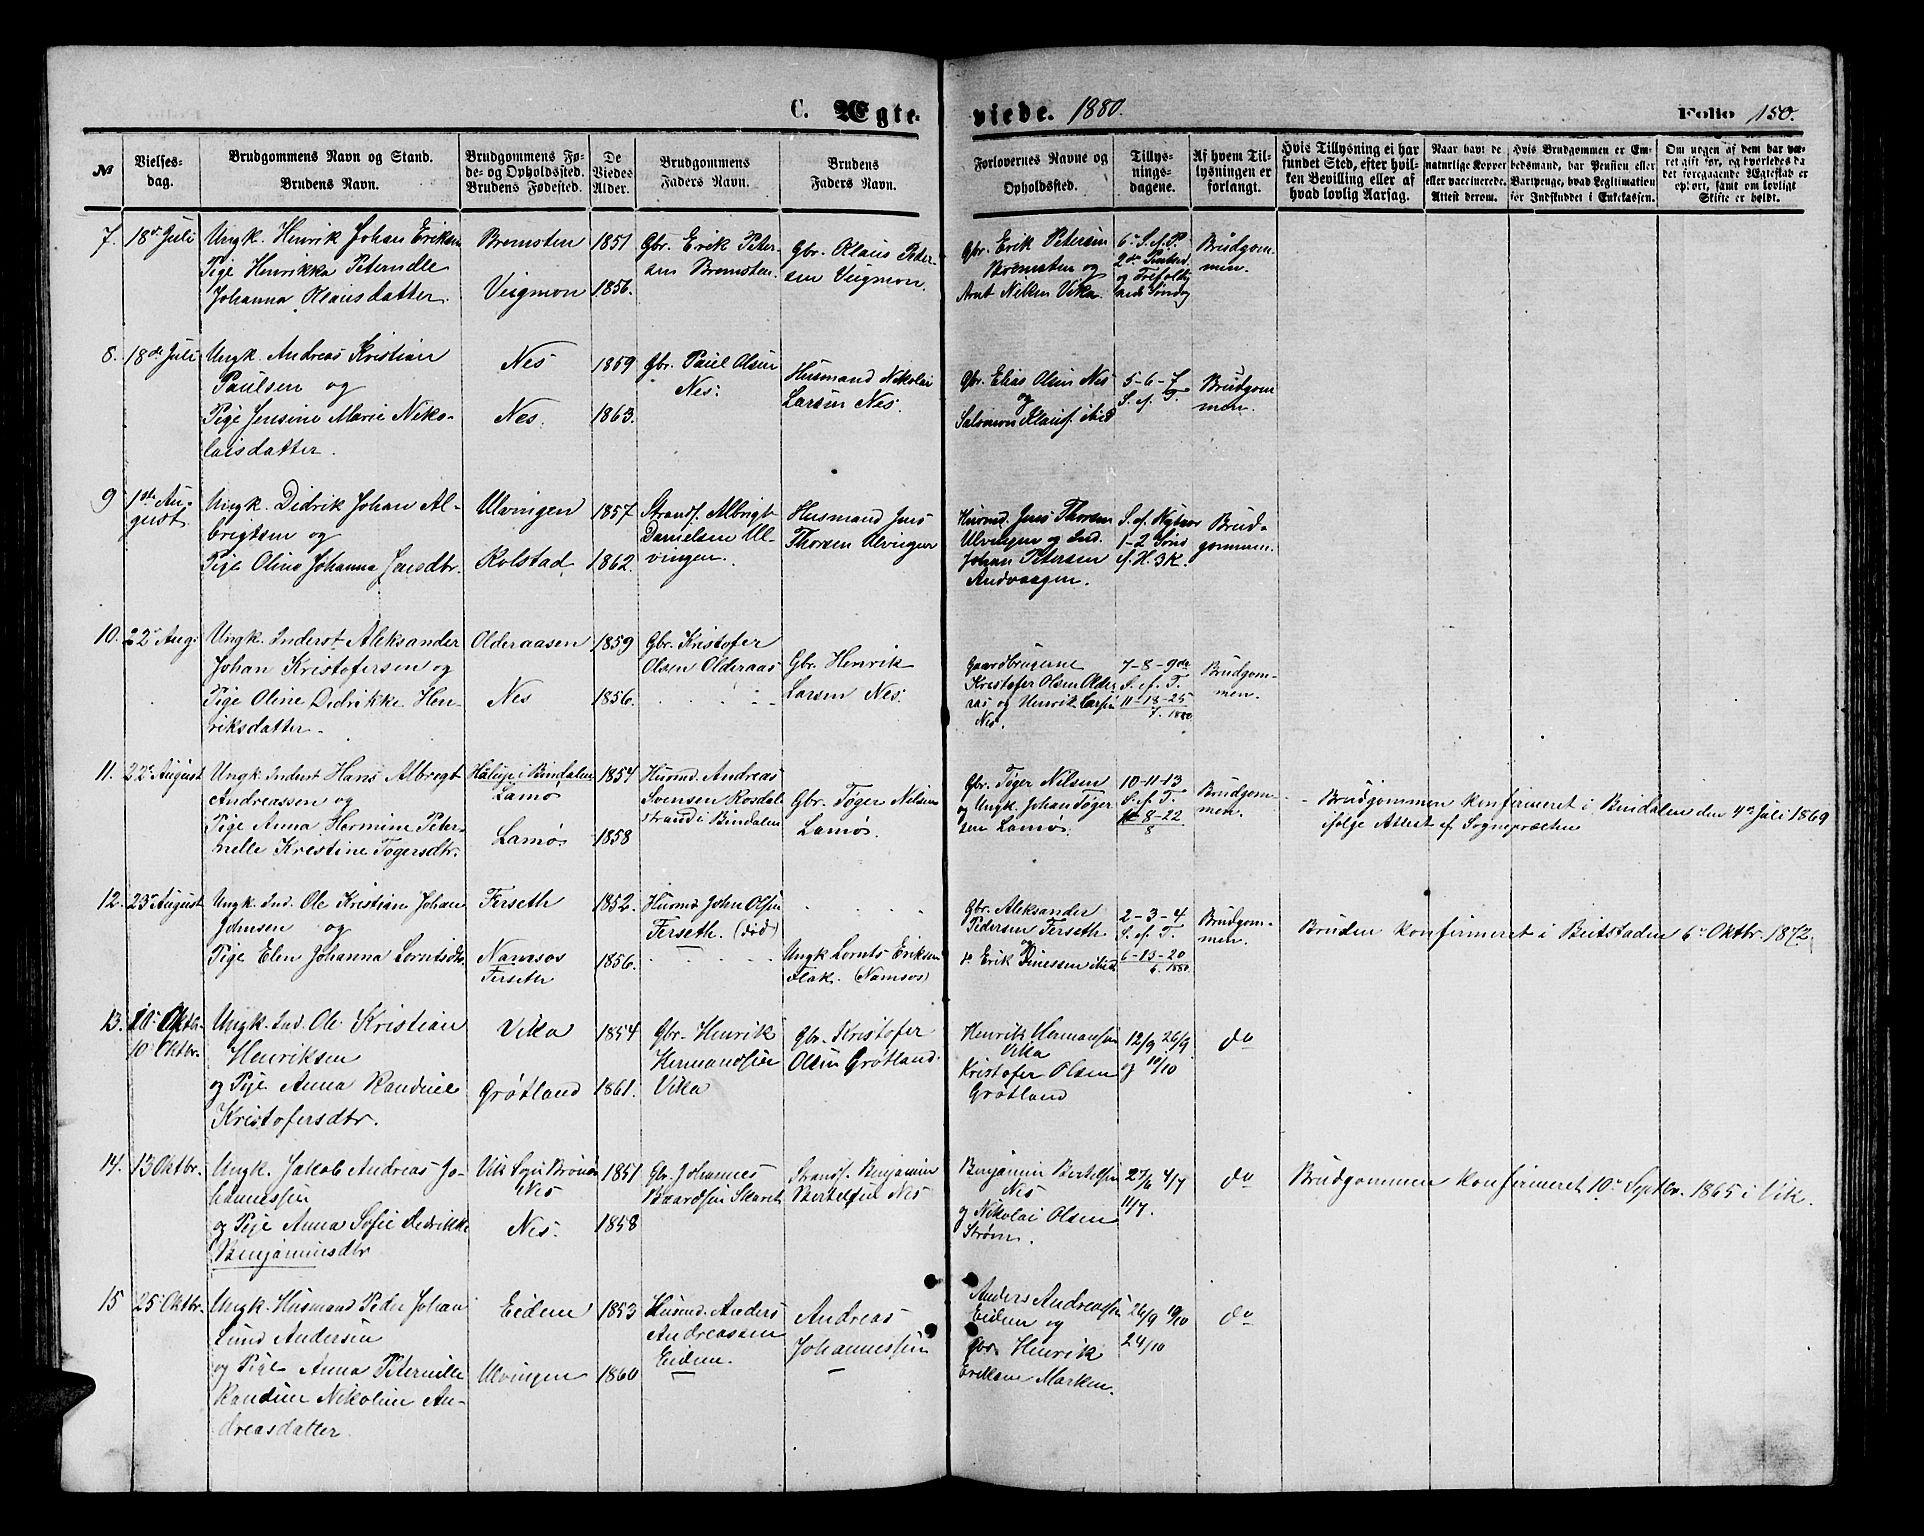 C. Ægte-
viede. 1880.
Folio 150.
No
Vielses-
dag.
Brudgommens Navn og Stand.
Brudens Navn.
Brudgommens Fø-
de- og Opholdssted.
Brudens Fødested.
De
Viedes
Alder.
Brudgommens
Faders Navn.
Brudens
Faders Navn.
Forlovernes Navne og
Opholdssted.
Tillys-
nings-
dagene.
Af hvem Til-
lysningen er
forlangt.
Hvis Tillysning ei har
fundet Sted, efter hvil-
ken Bevilling eller af
hvad lovlig Aarsag.
Naar havt de
naturlige Kopper
eller vaccinerede.
Attest derom.
Hvis Brudgommen er Em-
bedsmand, har Pension eller
Vartpenge, hvad Legitimation
for Indskuddet i Enkekassen.
Om nogen af dem har væ-
ret gift før, og hvorledes da
det foregaaende Ægteskab er
ophørt, samt om lovligt
Skifte er holdt.
7. 18de Juli
Ungk. Henrik Johan Eriksen
Pige Henrikka Peternelle
Johanna Klausdatter.
Bremsten
Veigmon
1851
1856.
Gbr. Erik Peter-
sen Bremsten.
Gbr. Klaus Peder-
sen Veigmon.
Gbr. Erik Petersen
Bremsten og
Arnt Nilsen Vika.
6te S. f. P.
2den Pintsed.
og Trefoldig-
heds Søndag
Brudgom-
men.
8. 18de Juli
Ungk. Andreas Kristian
Paulsen og
Pige Jensine Marie Niko-
laisdatter.
Nes
Nes.
1859
1863.
Gbr. Paul Olsen
Nes.
Husmand Nikolai
Larsen Nes.
Gbr. Elias Olsen Nes
og
Salomon Klausf. ibid
5-6-7
S. f. T.
Brudgom-
men.
9 1ste Au-
gust
Ungk. Didrik Johan Al-
brigtsen og
Pige Oline Johanna Jensdtr.
Ulvingen
Rolstad
1857
1862.
Strands. Albrigt
Danielsen Ul-
vingen.
Husmand Jens
Thorsen Ulvingen
Husmd. Jens Thorsen
Ulvingen og Ind.
Johan Petersen
Andvaagen.
S. f. Nytaar
1-2 Sønd
f. H. 3 K.
Brud-
gommen.
10. 22de Aug.
Ungk. Inderst Aleksander
Johan Kristofersen og
Pige Oline Didrikke Hen-
riksdatter.
Olderaasen
Nes
1859
1856.
Gbr. Kristofer
Olsen Olderaas
Gbr. Henrik
Larsen Nes.
Gaardbrugerne
Kristofer Olsen Olde-
raas og Henrik Larsen
Nes.
7-8-9de
S. f. T.
11-18-25
7. 1880
Brudgom-
men.
11. 22de August
Ungk. Inderst Hans Albregt
Andreassen og
Pige Anna Hermine Peter-
nelle Kristine Tøgersdtr.
i Bindalen
Lamø
Lamø
1854
1858
Husmd. Andreas
Svensen Rosdal-
strand i Bindalen
Gbr. Tøger Nilsen
Lamø.
Gbr. Tøger Nilsen
og Ungk. Johan Tøger-
sen Lamø.
10-11-13
S. f. T.
1-8-22
8
Brudgom-
men.
Brudgommen konfirmeret i Bindalen den 4de Juli 1869
ifølge Attest af Sognepræsten
12. 23de August
Ungk. Ind. Ole Kristian Johan
Johnsen og
Pige Elen Johanna Lorntsdtr.
Ferseth
Namsos
Ferseth
1852.
1856.
Husmd. John Olsen
Ferseth. (død)
Ungk Lornts Eriksen
Flak. (Namsos)
Gbr. Aleksander
Pedersen Ferseth
og
do Erik Dinessen ibid
2-3-4
S. f. T.
6-13-20
6. 1880.
Brudgom-
men.
Bruden konfirmeret i Beitstaden 6te Oktbr. 1872.
13. 10de Oktbr.
10 Oktbr.
Ungk. Ind. Ole Kristian
Henriksen
og Pige Anna Randine
Kristofersdtr.
Vika
Grøtland
1854
1861.
Gbr. Henrik
Hermansen
Vika
Gbr. Kristofer
Olsen Grøtland.
Henrik Hermansen
Vika
Kristofer Olsen
Grøtland
12/9 26/9
og 10/10
do
14. 13 Oktbr.
Ungk. Jakob Andreas Jo-
hannessen
og Pige Anna Sofie Didrikke
Benjaminsdtr
Vik Sogn Brønø
Nes
Nes.
1851
1858
Gbr. Johannes
Baardsen Skaret
Strands. Benjamin
Bertelsen Nes
Benjamin Bertelsen
Nes
og Nikolai Olsen
Strøm.
27/6 4/7
11/7.
do
Brudgommen konfirmeret 10de Septbr. 1865 i Vik.
15 25 Oktbr.
Ungk. Husmand Peder Johan
Lund Andersen
og Pige Anna Peternille
Randine Nikoline An-
dreasdatter
Eidem
Ulvingen
1853
1860
Husmd. Anders
Andreassen
Eidem.
Andreas
Johannessen
Anders Andreassen
Eidem og
Gbr. Henrik
Eriksen Marken.
26/9 10/10
24/10
do